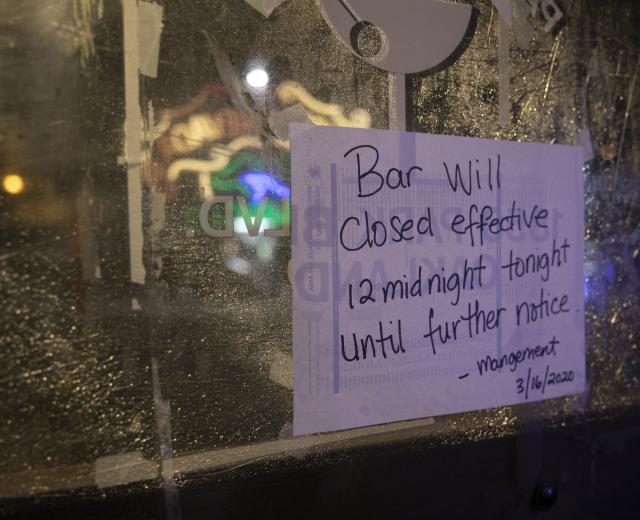 Bar Will
Closed effective
12 midnight tonight
Until further notice
- Mangement
3/16/2020
BLVD.